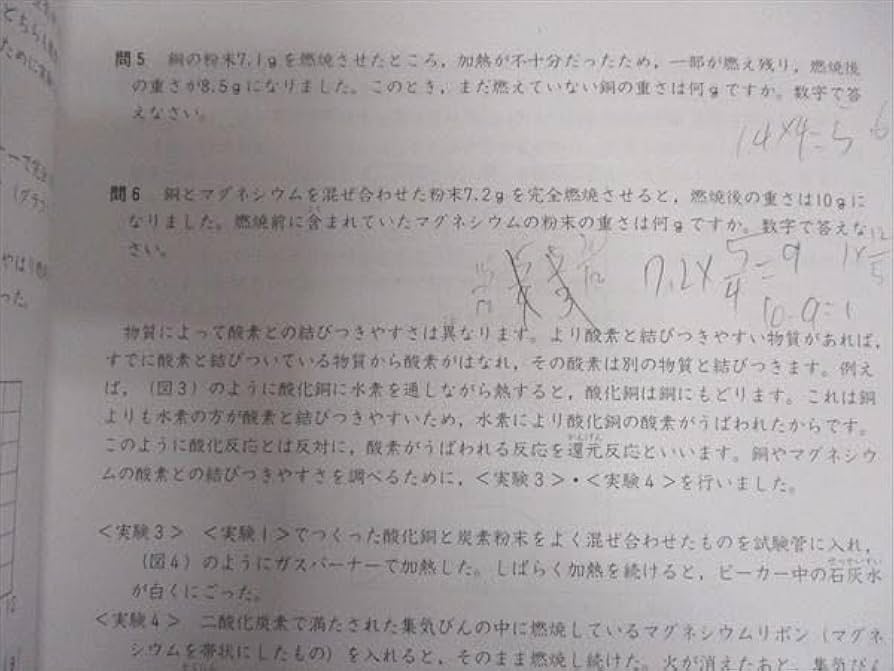 どちら
ために
問5 銅の粉末7.1gを燃焼させたところ，加熱が不十分だったため，一部が燃え残り，燃焼後
の重さが8.5gになりました。このとき，まだ燃えていない銅の重さは何gですか。数字で答
えなさい。
14×4=5 6
問6 銅とマグネシウムを混ぜ合わせた粉末7.2gを完全燃焼させると，燃焼後の重さは10gに
なりました。燃焼前に含まれていたマグネシウムの粉末の重さは何gですか。数字で答えな
さい。
7.2×5/4=9
1×12/5
10-9=1
物質によって酸素との結びつきやすさは異なります。より酸素と結びつきやすい物質があれば，
すでに酸素と結びついている物質から酸素がはなれ，その酸素は別の物質と結びつきます。例え
ば，（図3）のように酸化銅に水素を通しながら熱すると，酸化銅は銅にもどります。これは銅
よりも水素の方が酸素と結びつきやすいため，水素により酸化銅の酸素がうばわれたからです。
かんげん
このように酸化反応とは反対に，酸素がうばわれる反応を還元反応といいます。銅やマグネシウ
ムの酸素との結びつきやすさを調べるために，＜実験3＞・＜実験4＞を行いました。
＜実験3＞ ＜実験1＞でつくった酸化銅と炭素粉末をよく混ぜ合わせたものを試験管に入れ，
（図4）のようにガスバーナーで加熱した。しばらく加熱を続けると，ビーカー中の石灰水
が白くにごった。
＜実験4＞ 二酸化炭素で満たされた集気びんの中に燃焼しているマグネシウムリボン（マグネ
シウムを帯状にしたもの）を入れると，そのまま燃焼し続けた。火が消えたあと，集気びん